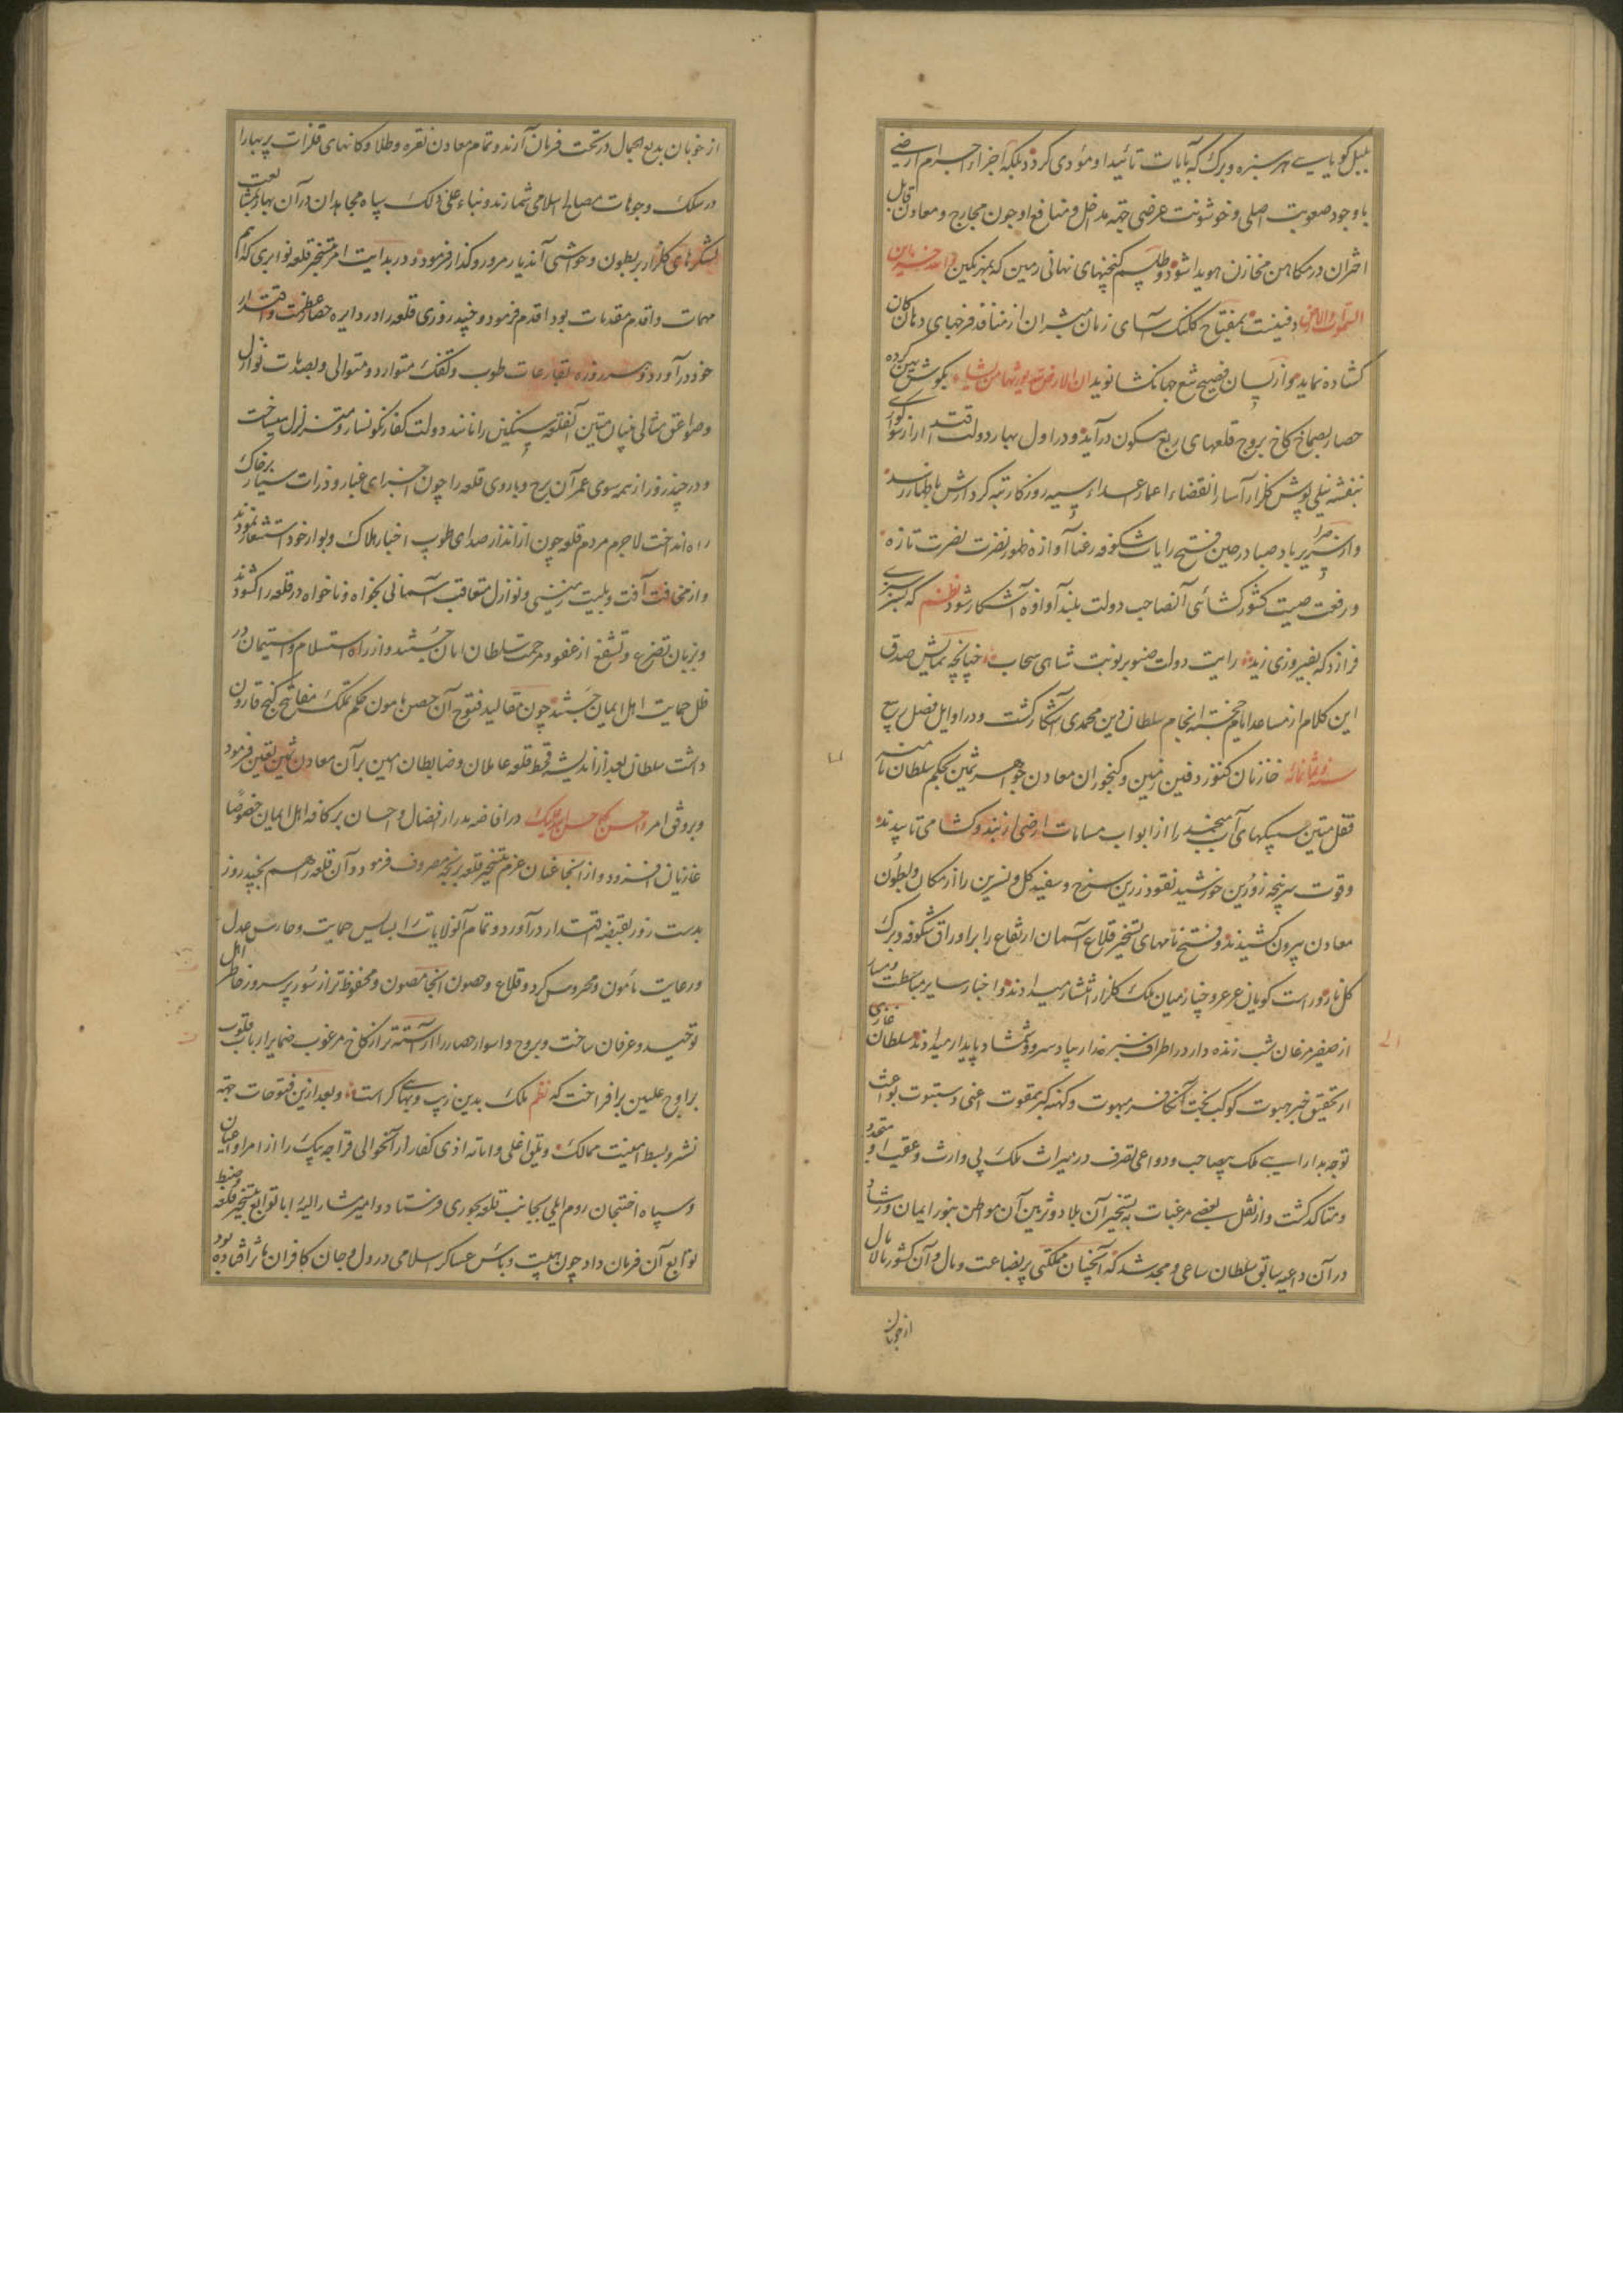 بلبل گویا بی هر سبزه و برگ که بآیات تائید او مؤدی گردد بلکه اجزاء اجرام ارضی
با وجود صعوبت اصلی و خوشونت عرضی جهه مداخل و منافع او چون مجارج و معادن قابل
اقتران در مکامن مخازن هویدا شود و طلسم گنجینهای نهانی زمین که بمهر نگین خزاین
السموات والارض دفینست بمفتاح کلنک آسای زمان مبشران از منافذ فرجهای دهان کان
گشاده نماید و از لسان فصیح شمع جهانگشا نوید ان الارض لله یورثها من یشاء بگوش
حصار بصماخ کاخ بروج قلعهای ربع مسکون درآید و در اول بهار دولت اقتدار از
بنفشه نیلی پوش گلزار آسا انقضاء اعمار اعداء سیه روزگار تبه کردارش باظهار رسد
و از صریر باد صبا در حین فتح رایات شکوفه رعنا آوازه ظهور نضرت نصرت تازه
و رفعت صیت کشورگشائی آنصاحب دولت بلند آوازه آشکار شود نظم که سبزی
فرازد که بفیروزی زند رایت دولت صنوبر نوبت شاهی سحاب چنانچه نمایش صدق
این کلام از مساعد ایام خجسته انجام سلطان دین محمدی آشکار گشت و در اوایل فصل ربیع
سنه وثمانمائه خازنان کنوز دفین زمین و گنجوران معادن جواهر ثمین بحکم سلطان نامیه
قفل متین سیمکهای آب منجمد را از ابواب مسامات ارضی از بند و گشا می تابیدند
و قوت سرپنجه زورین خورشید نقود زرین سرخ و سفید گل و نسرین را از مکان و بطون
معادن بیرون کشیدند و فتح نامهای تسخیر قلاع آسمان ارتفاع را بر اوراق شکوفه و برگ
گل نازور است گویان عرعر و چنار میان ملک گلزار انتشار میدادند و اخبار سایر
از صفیر مرغان شب زنده دار در اطراف سبزه زار بیاد سرو و شمشاد پایدار میدادند سلطان غازی
از تحقیق خبر کوکب بخت آنکافر مبهوت و
توجه بدارایی ملک بیصاحب و دواعی تصرف در میراث ملک بی وارث و عقب او متحد
و متأکد گشت و از نقل بعضی مرغبات به تسخیر آن بلاد و تزیین آن مواطن بنور ایمان و رشاد
در آن داعیه سابق سلطان ساعی و مجد شد که آنچنان مملکتی پر بضاعت و مال و آن کشور مالامال
از خوبان
از خوبان بدیع الجمال در تحت فرمان آرند و تمام معادن نقره و طلا و کانهای فلزات پر بها را
در سلک وجوهات مصالح اسلامی شمارند و بناء علی ذلک سپاه مجاهدان در آن بهار
لشکرهای گلزار بر بطون و حواشی آندیار مرور و گذار فرمود و در بدایت امر تسخیر قلعه نوابری که اهم
مهمات و اقدم مقدمات بود اقدام فرمود و چند روزی قلعه را در دایره حصار عظمت و اقتدار
خود درآورد و هر روزه بقارعات طوب و تفنک متوارد و متوالی و بصدمات نوازل
و صواعق مثالی بنیان متین آنقلعه سنگین را مانند دولت کفار نگونسار متزلزل میساخت
و در چند روز از همه سوی عمر آن برج و باروی قلعه را چون اجزای غبار و ذرات سیار بر خاک
راه انداخت لاجرم مردم قلعه چون از انذار صدای طوب اخبار هلاک و بوار خود استشعار نمودند
و از مخافت آفت و بلیت زمینی و نوازل متعاقب آسمانی بخواه و ناخواه در قلعه را گشودند
و بزبان تضرع و تشفع از عفو و مرحمت سلطان امان جستند و از راه استسلام و استیمان در
ظل حمایت اهل ایمان جستند چون مقالید فتوح آن حصن هامون حکم تملک مفاتیح گنج قارون
داشت سلطان بعد از اندیشه حفظ قلعه عاملان و ضابطان امین بر آن معادن ثمین تعیین فرمود
و بر وفق امر واحسن کما احسن الله الیک در افاضه مدرار افضال و احسان بر کافه اهل ایمان خصوصًا
غازیان افزود و از آنجا عنان عزم تسخیر قلعه مصروف فرمود و آن قلعه را هم بچند روز
بدست زور بقبضه اقتدار درآورد و تمام آنولایات را بپاس حمایت و حارس عدل
و رعایت مأمون و محروس کرد و قلاع و حصون آنجا مصون و محفوظ تر از سور پر سرور خاطر اهل
توحید و عرفان ساخت و بروج و اسوار حصار را آراسته تر از کاخ مرغوب ضمایر ارباب قلوب
بر اوج علیین برافراخت که نظم ملک بدین زیب و بها کراست و بعد ازین فتوحات جهه
نشر و بسط امینت ممالک و اماته اذی کفار از آنحوالی قراجه بیک را از امرا و اعیان
و سپاه افتتحان روم ایلی بجانب قلعه بچوری فرستاد و امیر مشار الیه را با توابع بتسخیر قلعه و ضبط
توابع آن فرمان داد چون هیبت و بأس عساکر اسلامی در دل و جان کافران تأثر افتاده بود